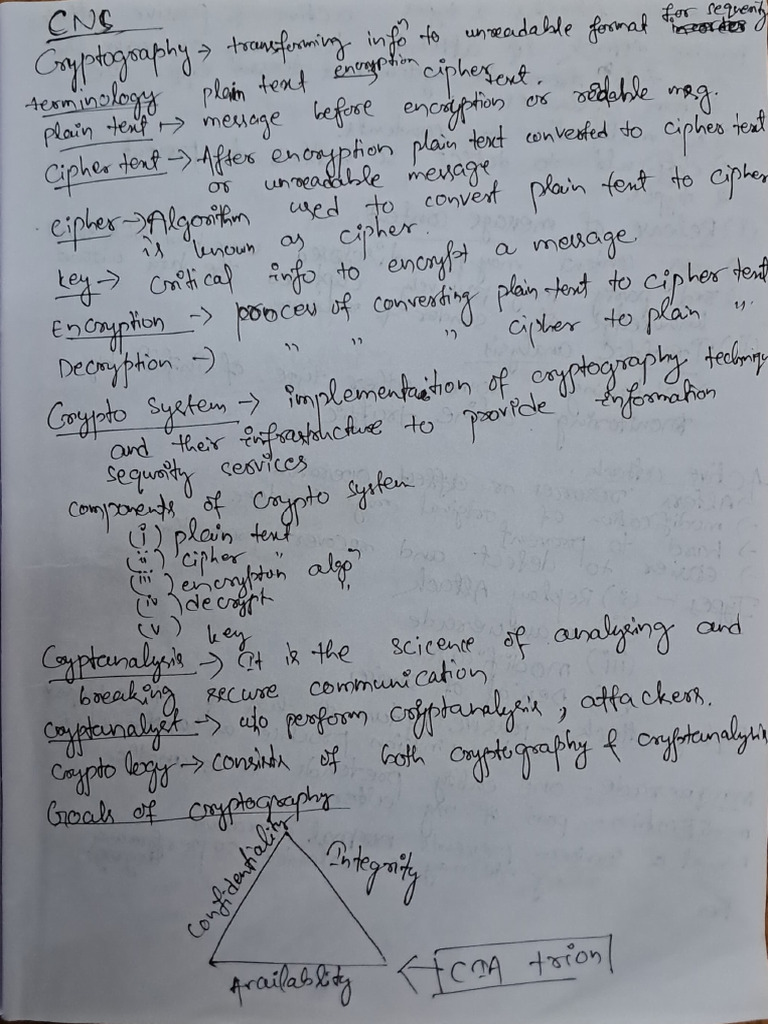 CNS
Cryptography → transforming infoⁿ to unreadable format for sequrity
plain text encryption→ cipher text.
terminology
plain text → message before encryption or redable msg.
Cipher text → After encryption plain text converted to cipher text
or unreadable message
cipher → Algorithm used to convert plain text to cipher
is known as cipher.
Key → Critical info to encrypt a message.
Encryption → process of converting plain text to cipher text
Decryption → " " " cipher to plain ".
Crypto System → implementaition of cryptography technique
and their infrastructure to provide information
sequrity services
Components of crypto system
(i) plain text
(ii) cipher "
(iii) encryption algoⁿ
(iv) decrypt "
(v) key
Cryptanalysis → It is the scicence of analysing and
breaking secure communication
cryptanalyst → who perform cryptanalysis, attackers.
Crypto logy → consists of both cryptography & cryptanalysis
Goals of cryptography
Confidentiality
Integrity
Availablity
← CIA trion